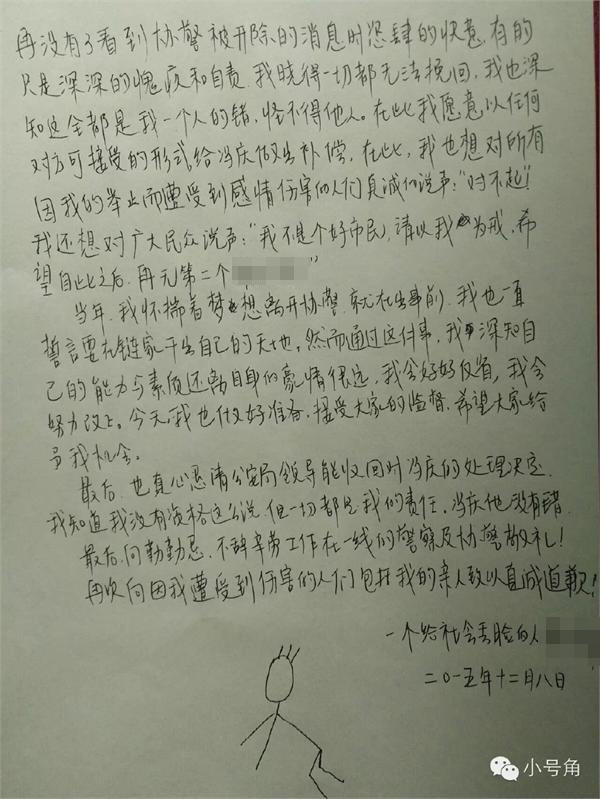 再没有了看到协警被开除的消息时恣肆的快意,有的
只是深深的愧疚和自责.我晓得一切都无法挽回,我也深
知这全都是我一个人的错,怪不得他人。在此我愿意以任何
对方可接受的形式,给冯庆做出补偿,在此,我也想对所有
因我的举止而遭受到感情伤害的人们真诚的说声:"对不起!
我还想对广大民众说声:"我不是个好市民,请以我为戒,希
望自此之后,再无第二个"
当年,我怀揣着梦想离开协警.就在出事前,我也一直
誓言要在链家干出自己的天地,然而通过这件事,我深知自
己的能力与素质还离自身的豪情很远,我会好好反省,我会
努力改正。今天,我也做好准备,接受大家的监督,希望大家给
予我机会。
最后,也真心恳请公安局领导能收回对冯庆的处理决定.
我知道我没有资格这么说,但一切都是我的责任,冯庆他没有错.
最后,向勤勤恳、不辞辛劳工作在一线的警察及协警敬礼!
再次向因我遭受到伤害的人们包括我的亲人致以真诚道歉!
一个给社会丢脸的人
二〇一五年十二月八日
小号角